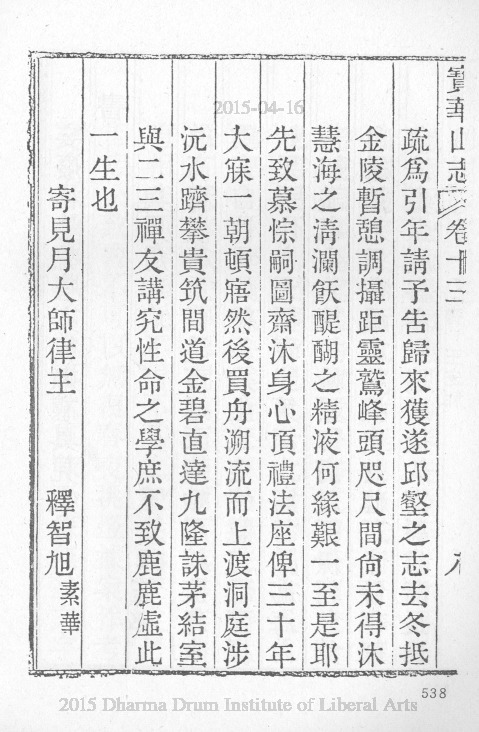 寶華山志 卷十三 九
疏爲引年請予告歸來獲遂邱壑之志去冬抵
金陵暫憩調攝距靈鷲峰頭咫尺間尙未得沐
慧海之淸瀾飫醍醐之精液何緣艱一至是耶
先致慕悰嗣圖齋沐身心頂禮法座俾三十年
大寐一朝頓寤然後買舟溯流而上渡洞庭涉
沅水躋攀貴筑間道金碧直達九隆誅茅結室
與二三禪友講究性命之學庶不致鹿鹿虛此
一生也
寄見月大師律主 釋智旭 素華
2015-04-16
538
2015 Dharma Drum Institute of Liberal Arts